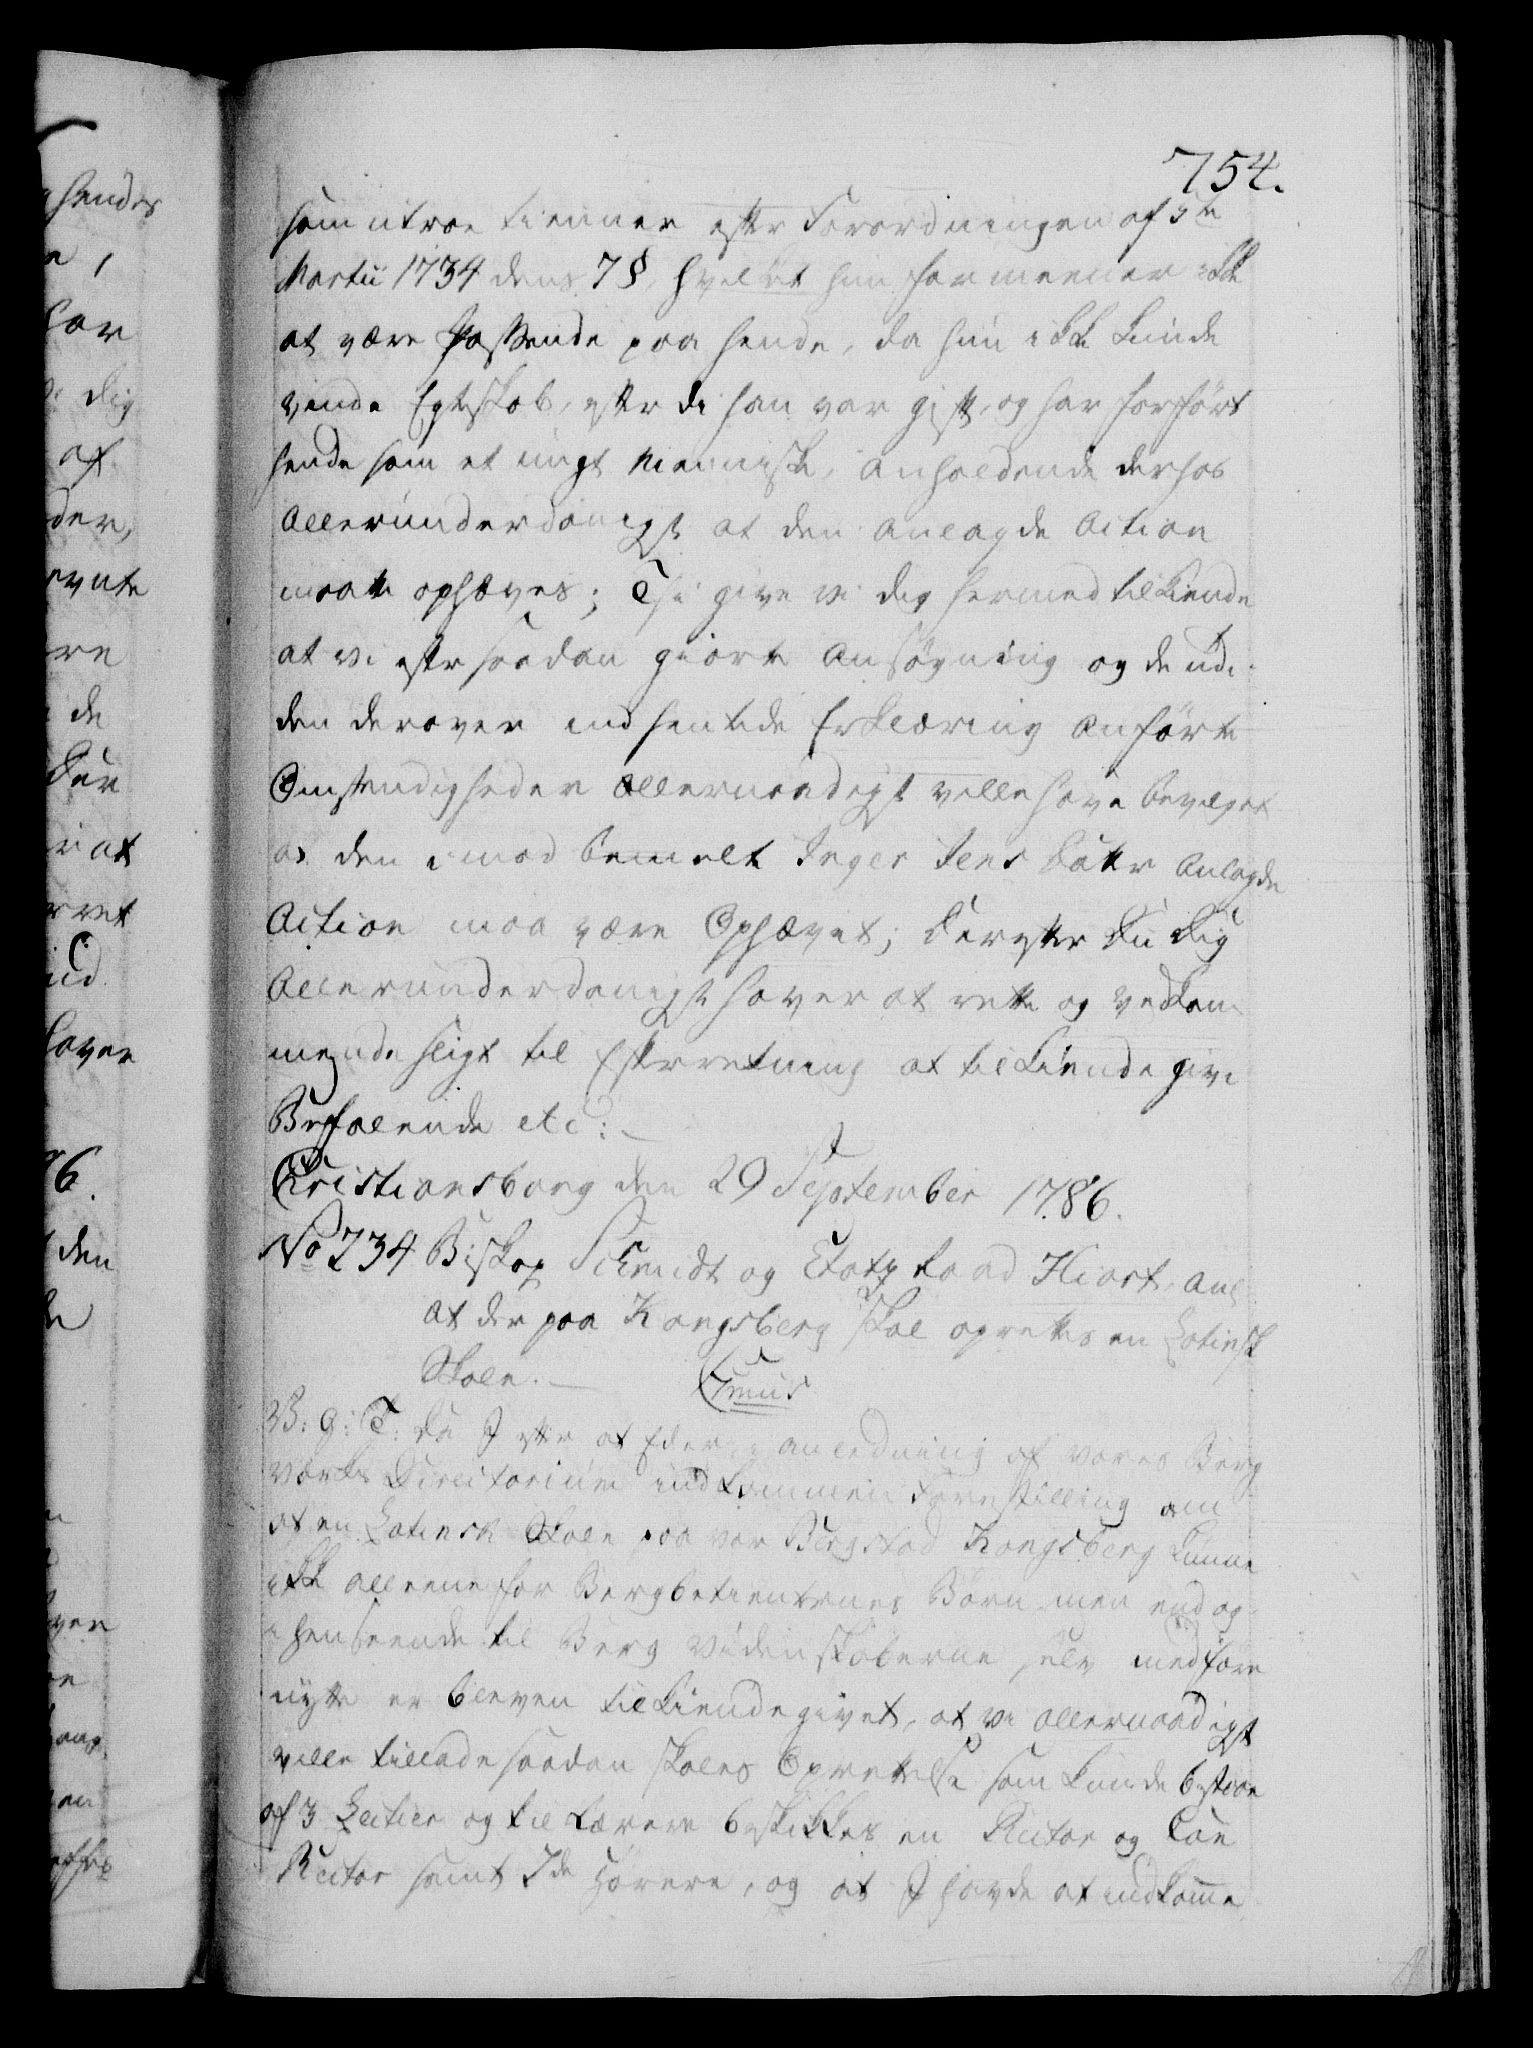 754.
som utroe tienner efter Forordningen af 5te
Martii 1734 dens 7 §, hvilket hun formeener ikke
at være passende paa hende, da hun ikke kunde
vende Egteskab, efterdi han var gift, og har forført
hende som et ungt Menniske, anholdende derhos
Allerunderdanigst at den anlagde Action
maatte ophæves; Thi give vi dig hermed tilkiende
at vi efter saadan giorte Ansøgning og de udi
den derover indhentede Erklæring anførte
Omstendigheder Allernaadigst ville have bevilget
at den imod bemelte Inger Jens Datter Anlagde
Action maa være Ophævet; Derefter du dig
Allerunderdanigst haver at rette og vedkom
mende sligt til Efterretning at tilkiende give
Befalende etc:
Christiansborg den 29 September 1786.
No 734 Biskop Schmidt og Etatz Raad Hiort, ang
at der paa Kongsberg Skal oprettes en Latinsk
Skole.
V: G: T: Da I efter at Eder i anledning af vores Berg
værks Directorium indkommen Forestilling om
at en Latinsk Skole paa vor Bergstad Kongsberg kunne
ikke alleene for Bergbetienternes Børn men endog
i henseende til Berg Videnskaberne selv medføre
nytte er bleven tilkiendegivet, at vi allernaadigst
ville tillade saadan Skoles Oprettelse som kunde bestaae
af 3 Lectier og til Lærere beskikkes en Rector og Con
Rector samt 2de Hørere, og at I havde at indkomme